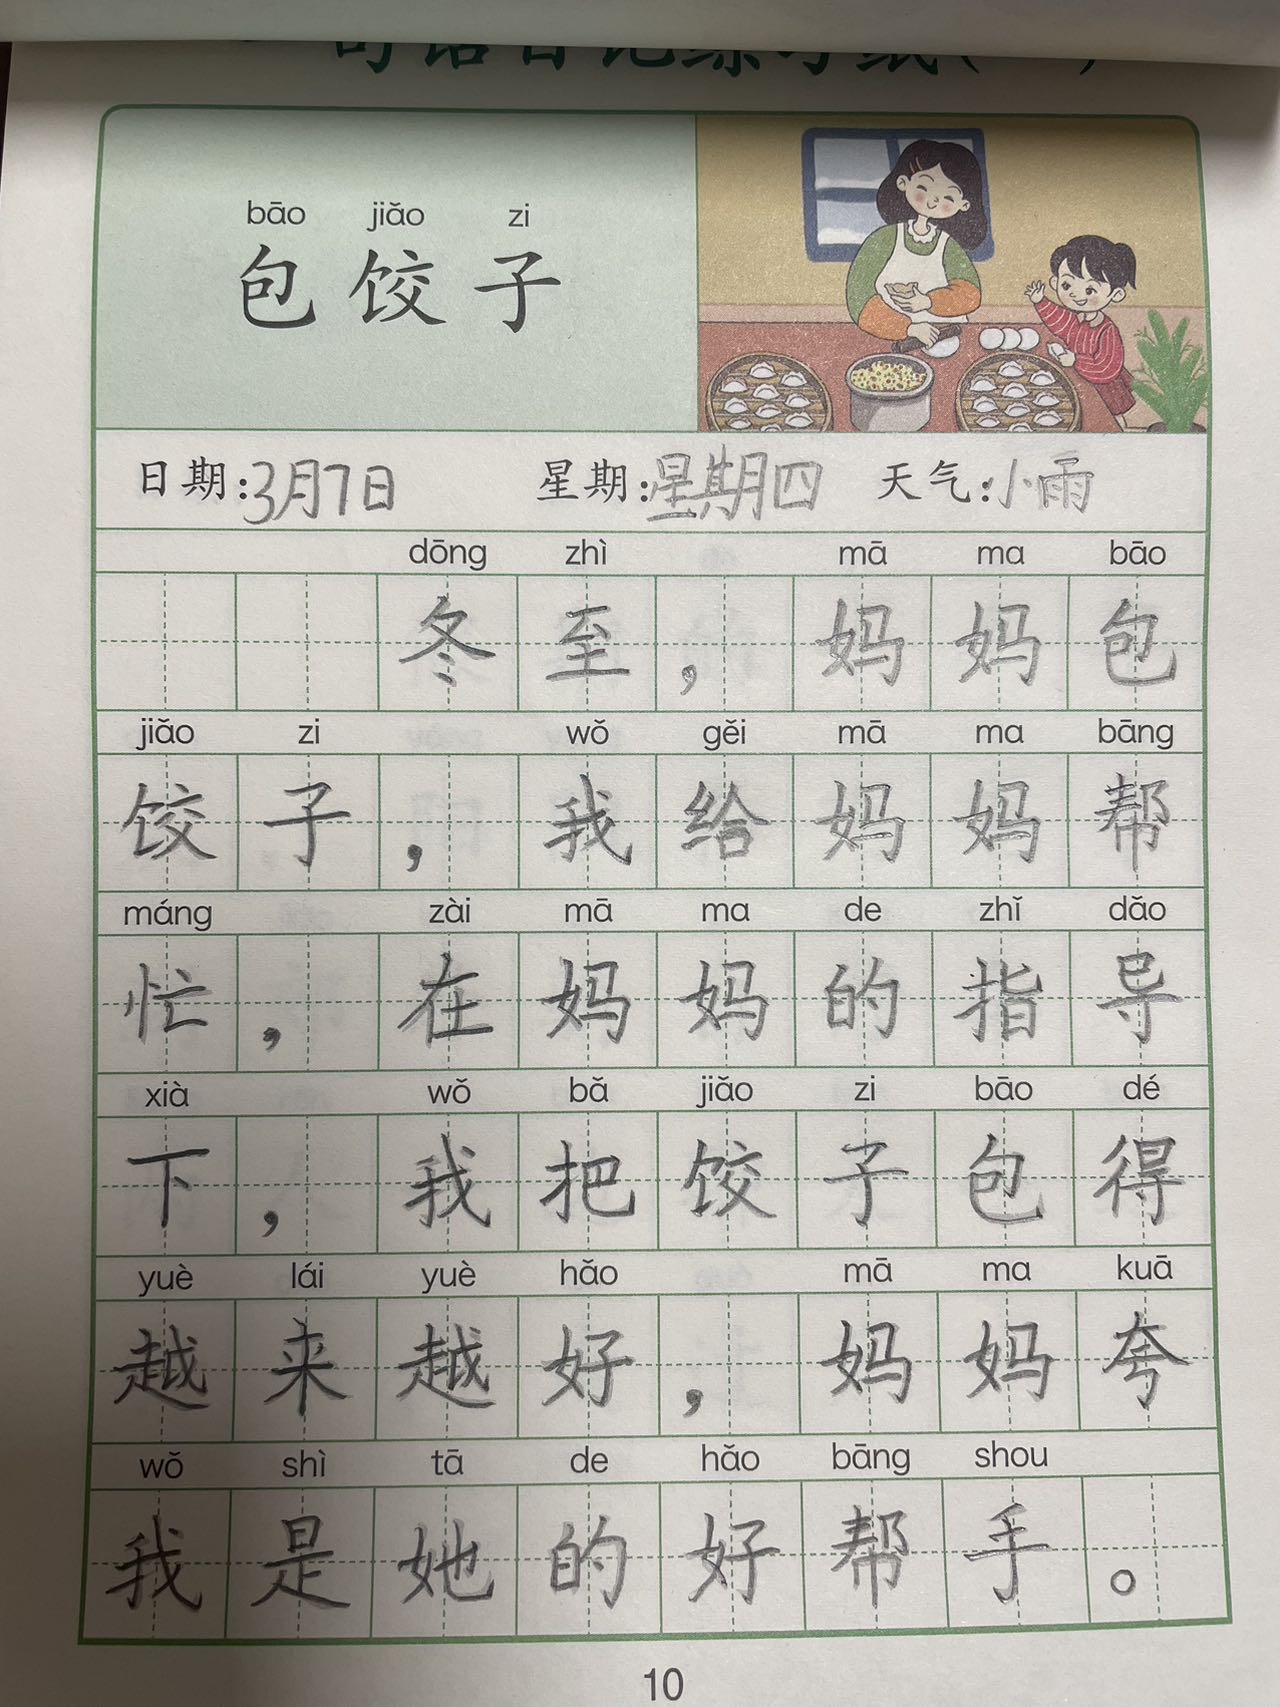 bāo jiǎo zi
包饺子
日期:3月7日 星期:星期四 天气:小雨
dōng zhì mā ma bāo
冬至，妈妈包
jiǎo zi wǒ gěi mā ma bāng
饺子，我给妈妈帮
máng zài mā ma de zhǐ dǎo
忙，在妈妈的指导
xià wǒ bǎ jiǎo zi bāo dé
下，我把饺子包得
yuè lái yuè hǎo mā ma kuā
越来越好，妈妈夸
wǒ shì tā de hǎo bāng shou
我是她的好帮手。
10